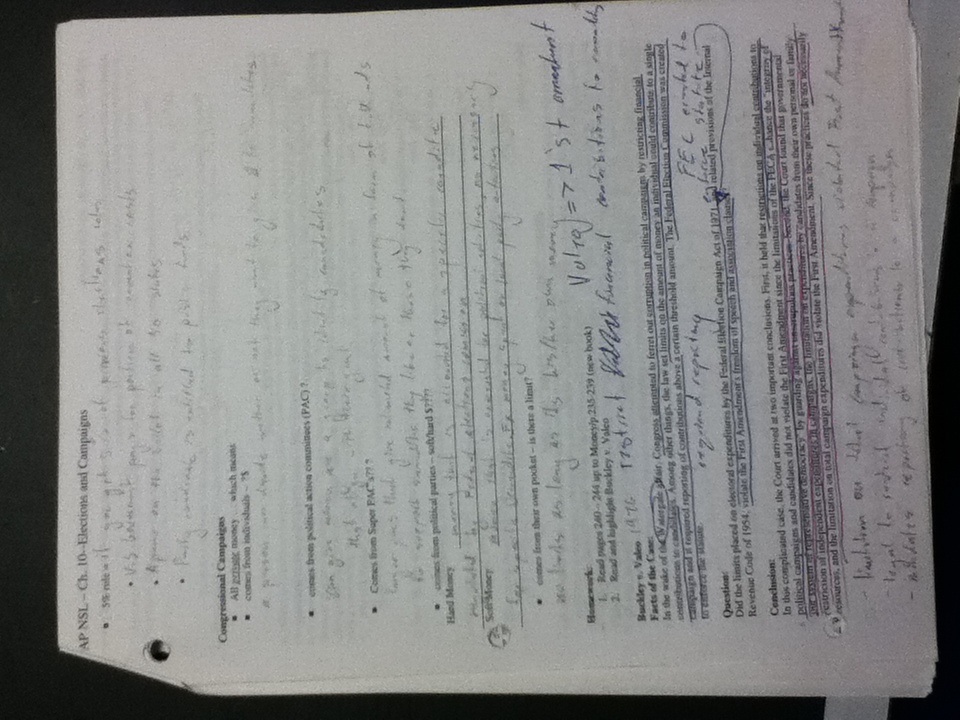 AP NSL – Ch. 10--Elections and Campaigns
5% rule = if you get 5% of previous elections votes
U.S Government pays for portion of convention costs
Appear on the ballot in all 50 states
Party candidate is entitled to public funds
Congressional Campaigns
All private money which means
comes from individuals – ?$
a person can decide whether or not they want to give $ to candidates
comes from political action committees (PAC) ?
Can give money as a group to candidates
that align
Comes from Super PAC's?? ?
that give unlimited amount of money in form of ads
to support candidates they like or those they don't
comes from political parties – soft/hard $????
Hard Money money that is accounted for a specific candidate
regulated by Federal elections commission
Soft Money money that is for political activities, no necessarily
for specific candidate. Ex money spent on local party activities
comes from their own pocket – is there a limit?
no limits as long as it's his/her own money
Homework:
1. Read pages 240 – 244 up to Money/p.235-239 (new book)
2. Read and highlight Buckley v. Valeo
Valeo => 1'st amendment
Buckley v. Valeo 1976 restrict financial contributions to
Facts of the Case:
In the wake of the Watergate affair, Congress attempted to ferret out corruption in political campaigns by restricting financial
contributions to candidates. Among other things, the law set limits on the amount of money an individual could contribute to a single
campaign and it required reporting of contributions above a certain threshold amount. The Federal Election Commission was created
to enforce the statute.
required reporting
FEC created to
enforce statute
Question:
Did the limits placed on electoral expenditures by the Federal Election Campaign Act of 1971, and related provisions of the Internal
Revenue Code of 1954, violate the First Amendment's freedom of speech and association clauses?
Conclusion:
In this complicated case, the Court arrived at two important conclusions. First, it held that restrictions on individual contributions to
political campaigns and candidates did not violate the First Amendment since the limitations of the FECA enhance the "integrity of
our system of representative democracy" by guarding against unscrupulous practices. Second, the Court found that governmental
restriction of independent expenditures in campaigns, the limitation on expenditures by candidates from their own personal or family
resources, and the limitation on total campaign expenditures did violate the First Amendment. Since these practices do not necessarily
- limitation on total campaign expenditures violated First Amendment
- legal to restrict individual contributions to a campaign
- mandates reporting of contributions to a campaign